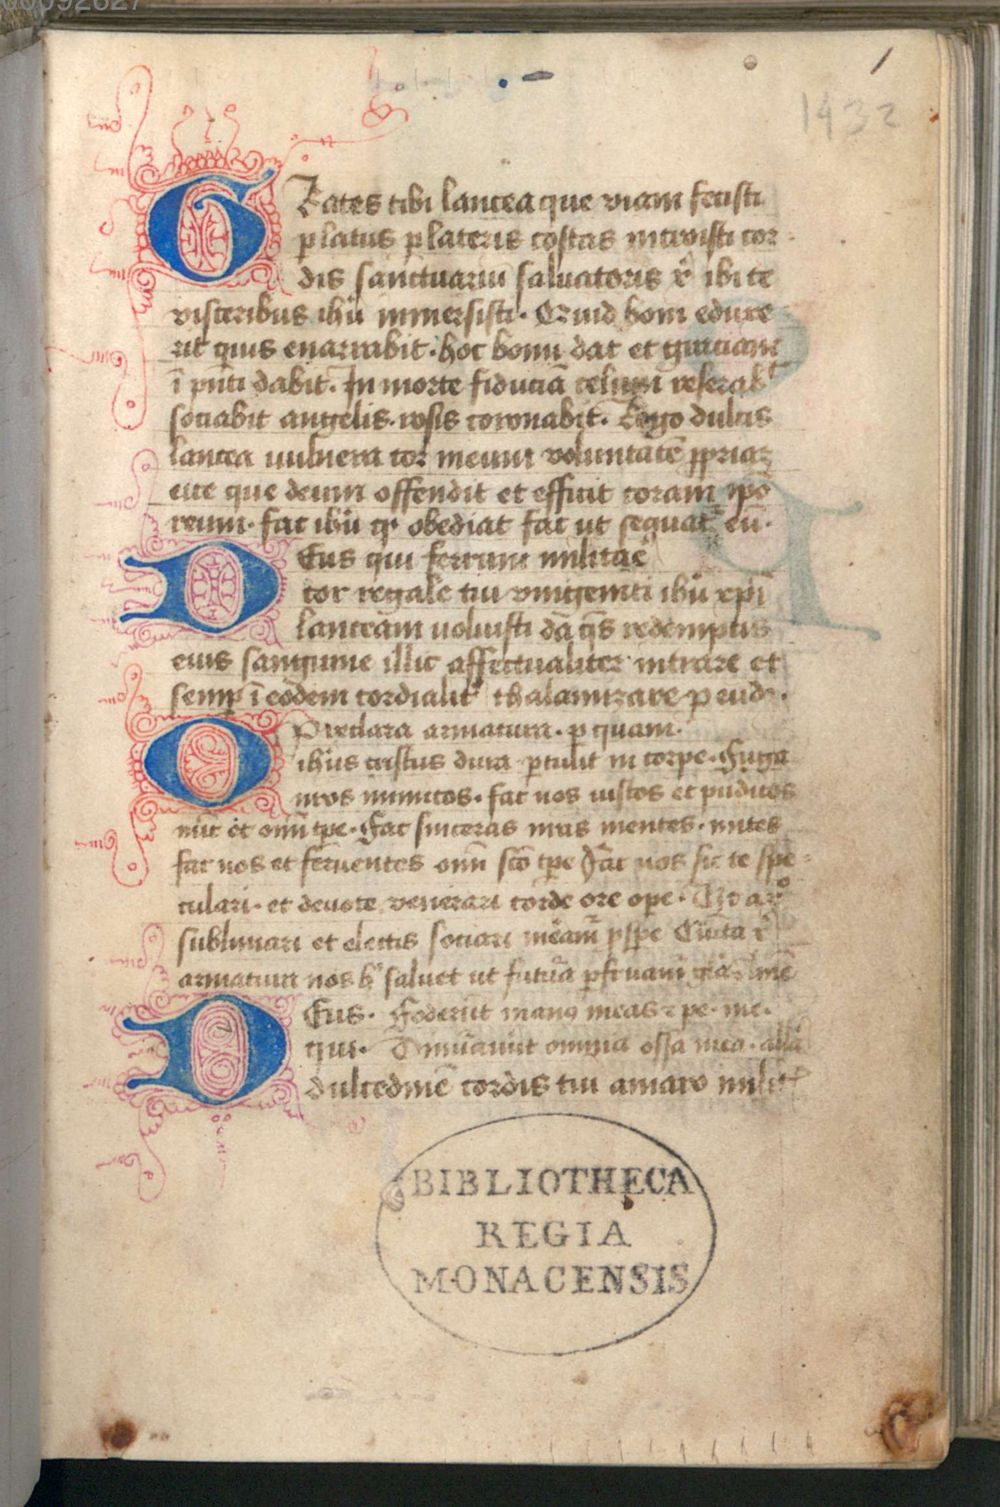 00092627
1
1432
GRates tibi lancea que viam fecisti
p latus p lateris costas introisti cor
dis sanctuariu saluatoris xͥ ibi te
visceribus ihū inmersisti. Quid boni eduxe
rit quis enarrabit. hoc bonū dat et graciam
ī pn̄ti dabit. In morte fiduciā celum reserabᵗ
sociabit angelis. rosis coronabit. Ergo dulcis
lancea uulnera cor meum voluntatē ppriaꝫ
eice que deum offendit et efficit coram ipō
reum. fac ihū qꝫ obediat fac ut sequatᷣ eū.
DEus qui ferrum militaē
cor regale tui vnigeniti ihū xpī
lanceam uoluisti dā qs redemptis
eius sanguine illic affectualiter intrare et
semp ī eodem cordialitᷣ thalamizare p eūdē.
O Preclara armatura. p quam.
ihūs cristus dura ptulit in corpe. Fuga
nros inimicos. fac nos iustos et pudicos
nūc et omī tpe. Fac sinceras nras mentes. mites
fac nos et feruentes omī scō tpe Fac nos sic te spe
culari. et deuote venerari corde ore ope.
sublimari et electis sociari
armatura nos hͦ saluet ut futūa pfruamᷣ gliā Amē
DEus. Foderūt manꝯ meas ⁊ pe. me.
qui. Dinūauūt omnia ossa mea. alla
dulcedinē cordis tui amaro milit
BIBLIOTHECA
REGIA
MONACENSIS